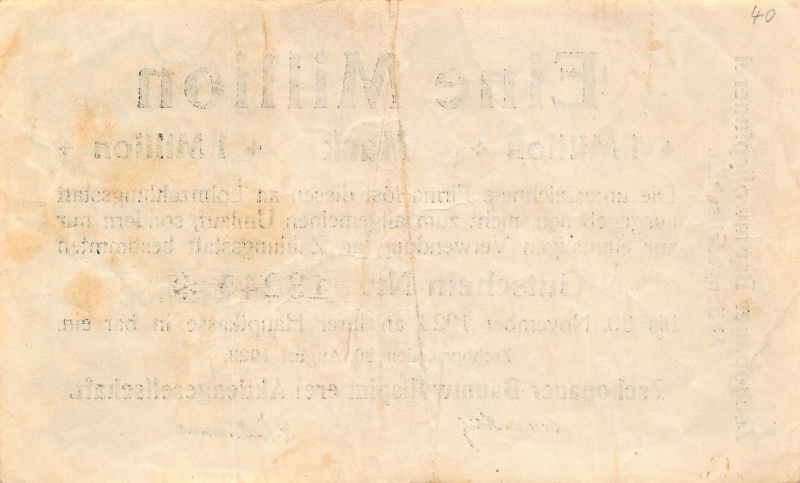 40
Eine Million
+ 1 Million + Mark + 1 Million +
Die unterzeichnete Firma löst diesen an Lohnzahlungsstatt
ausgegebenen, nicht zum allgemeinen Umlauf, sondern nur
zur einmaligen Verwendung an Zahlungsstatt bestimmten
Gutschein Nr.
bis 30. November 1923 an ihrer Hauptkasse in bar ein.
Zschopau, den 20. August 1923.
Zschopauer Baumwollspinnerei Aktiengesellschaft.
Zschopauer Baumwollspinnerei
Aktiengesellschaft